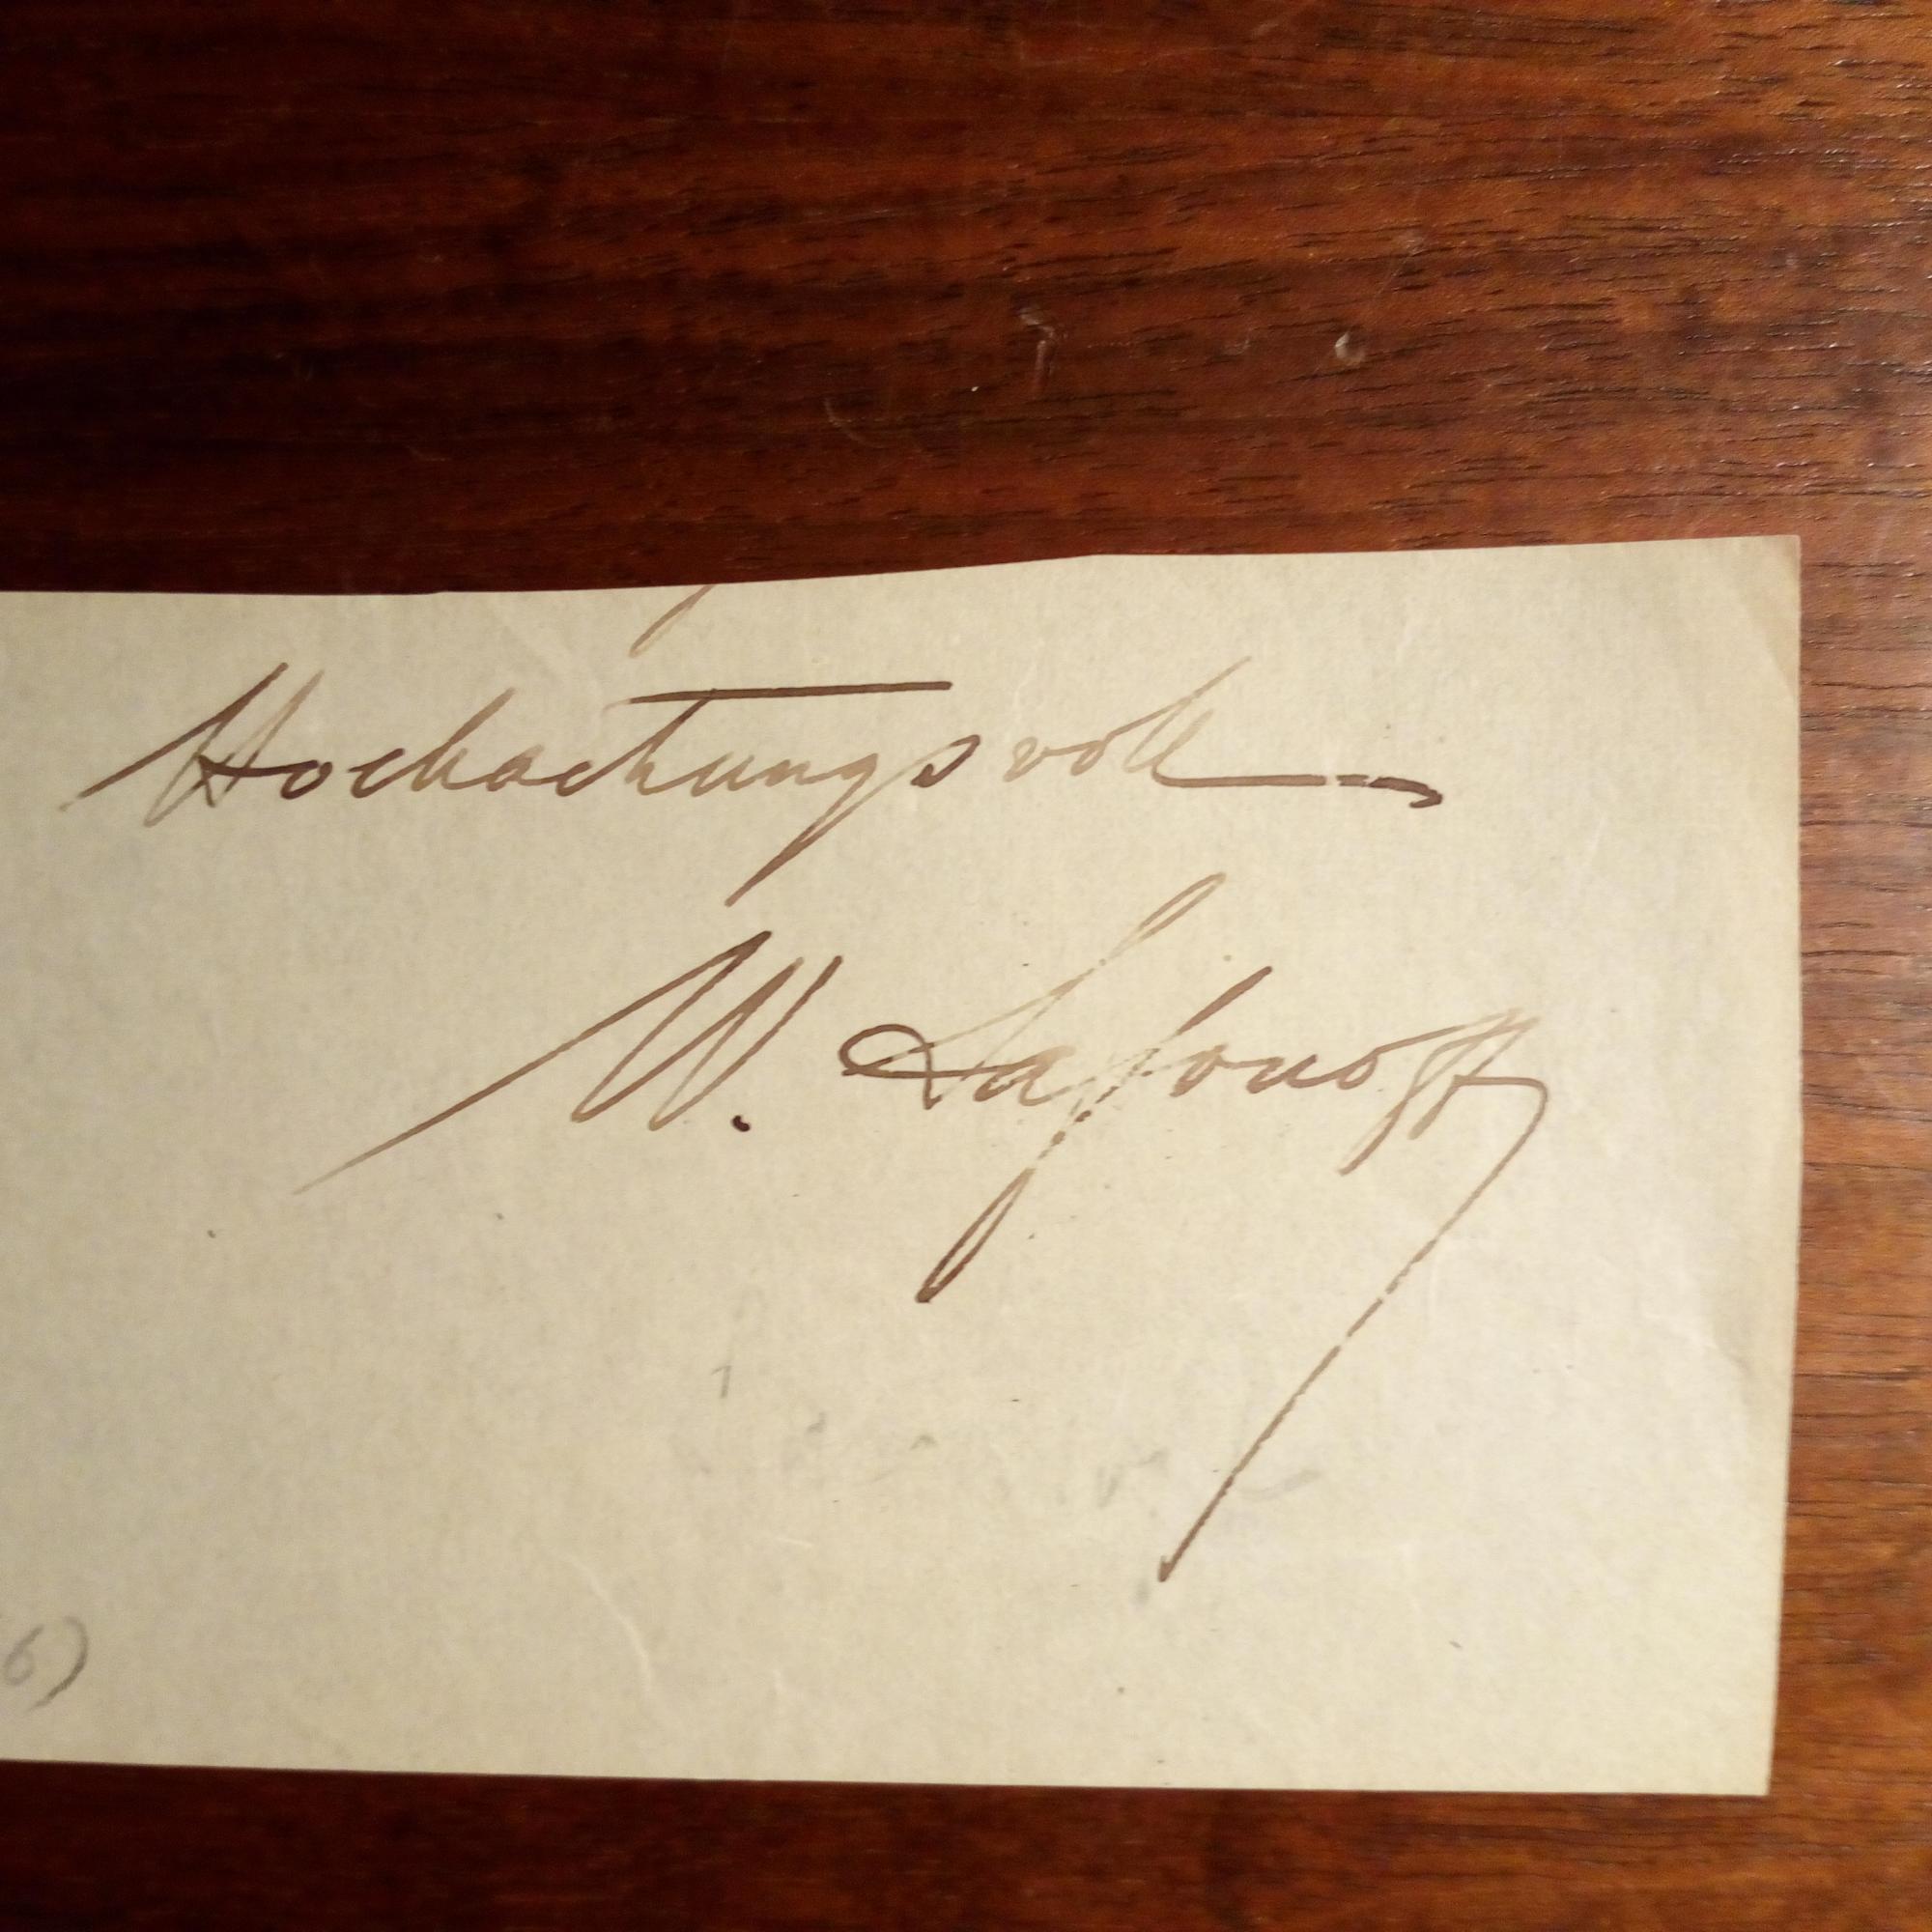 Hochachtungsvoll
W. Safonoff
6)